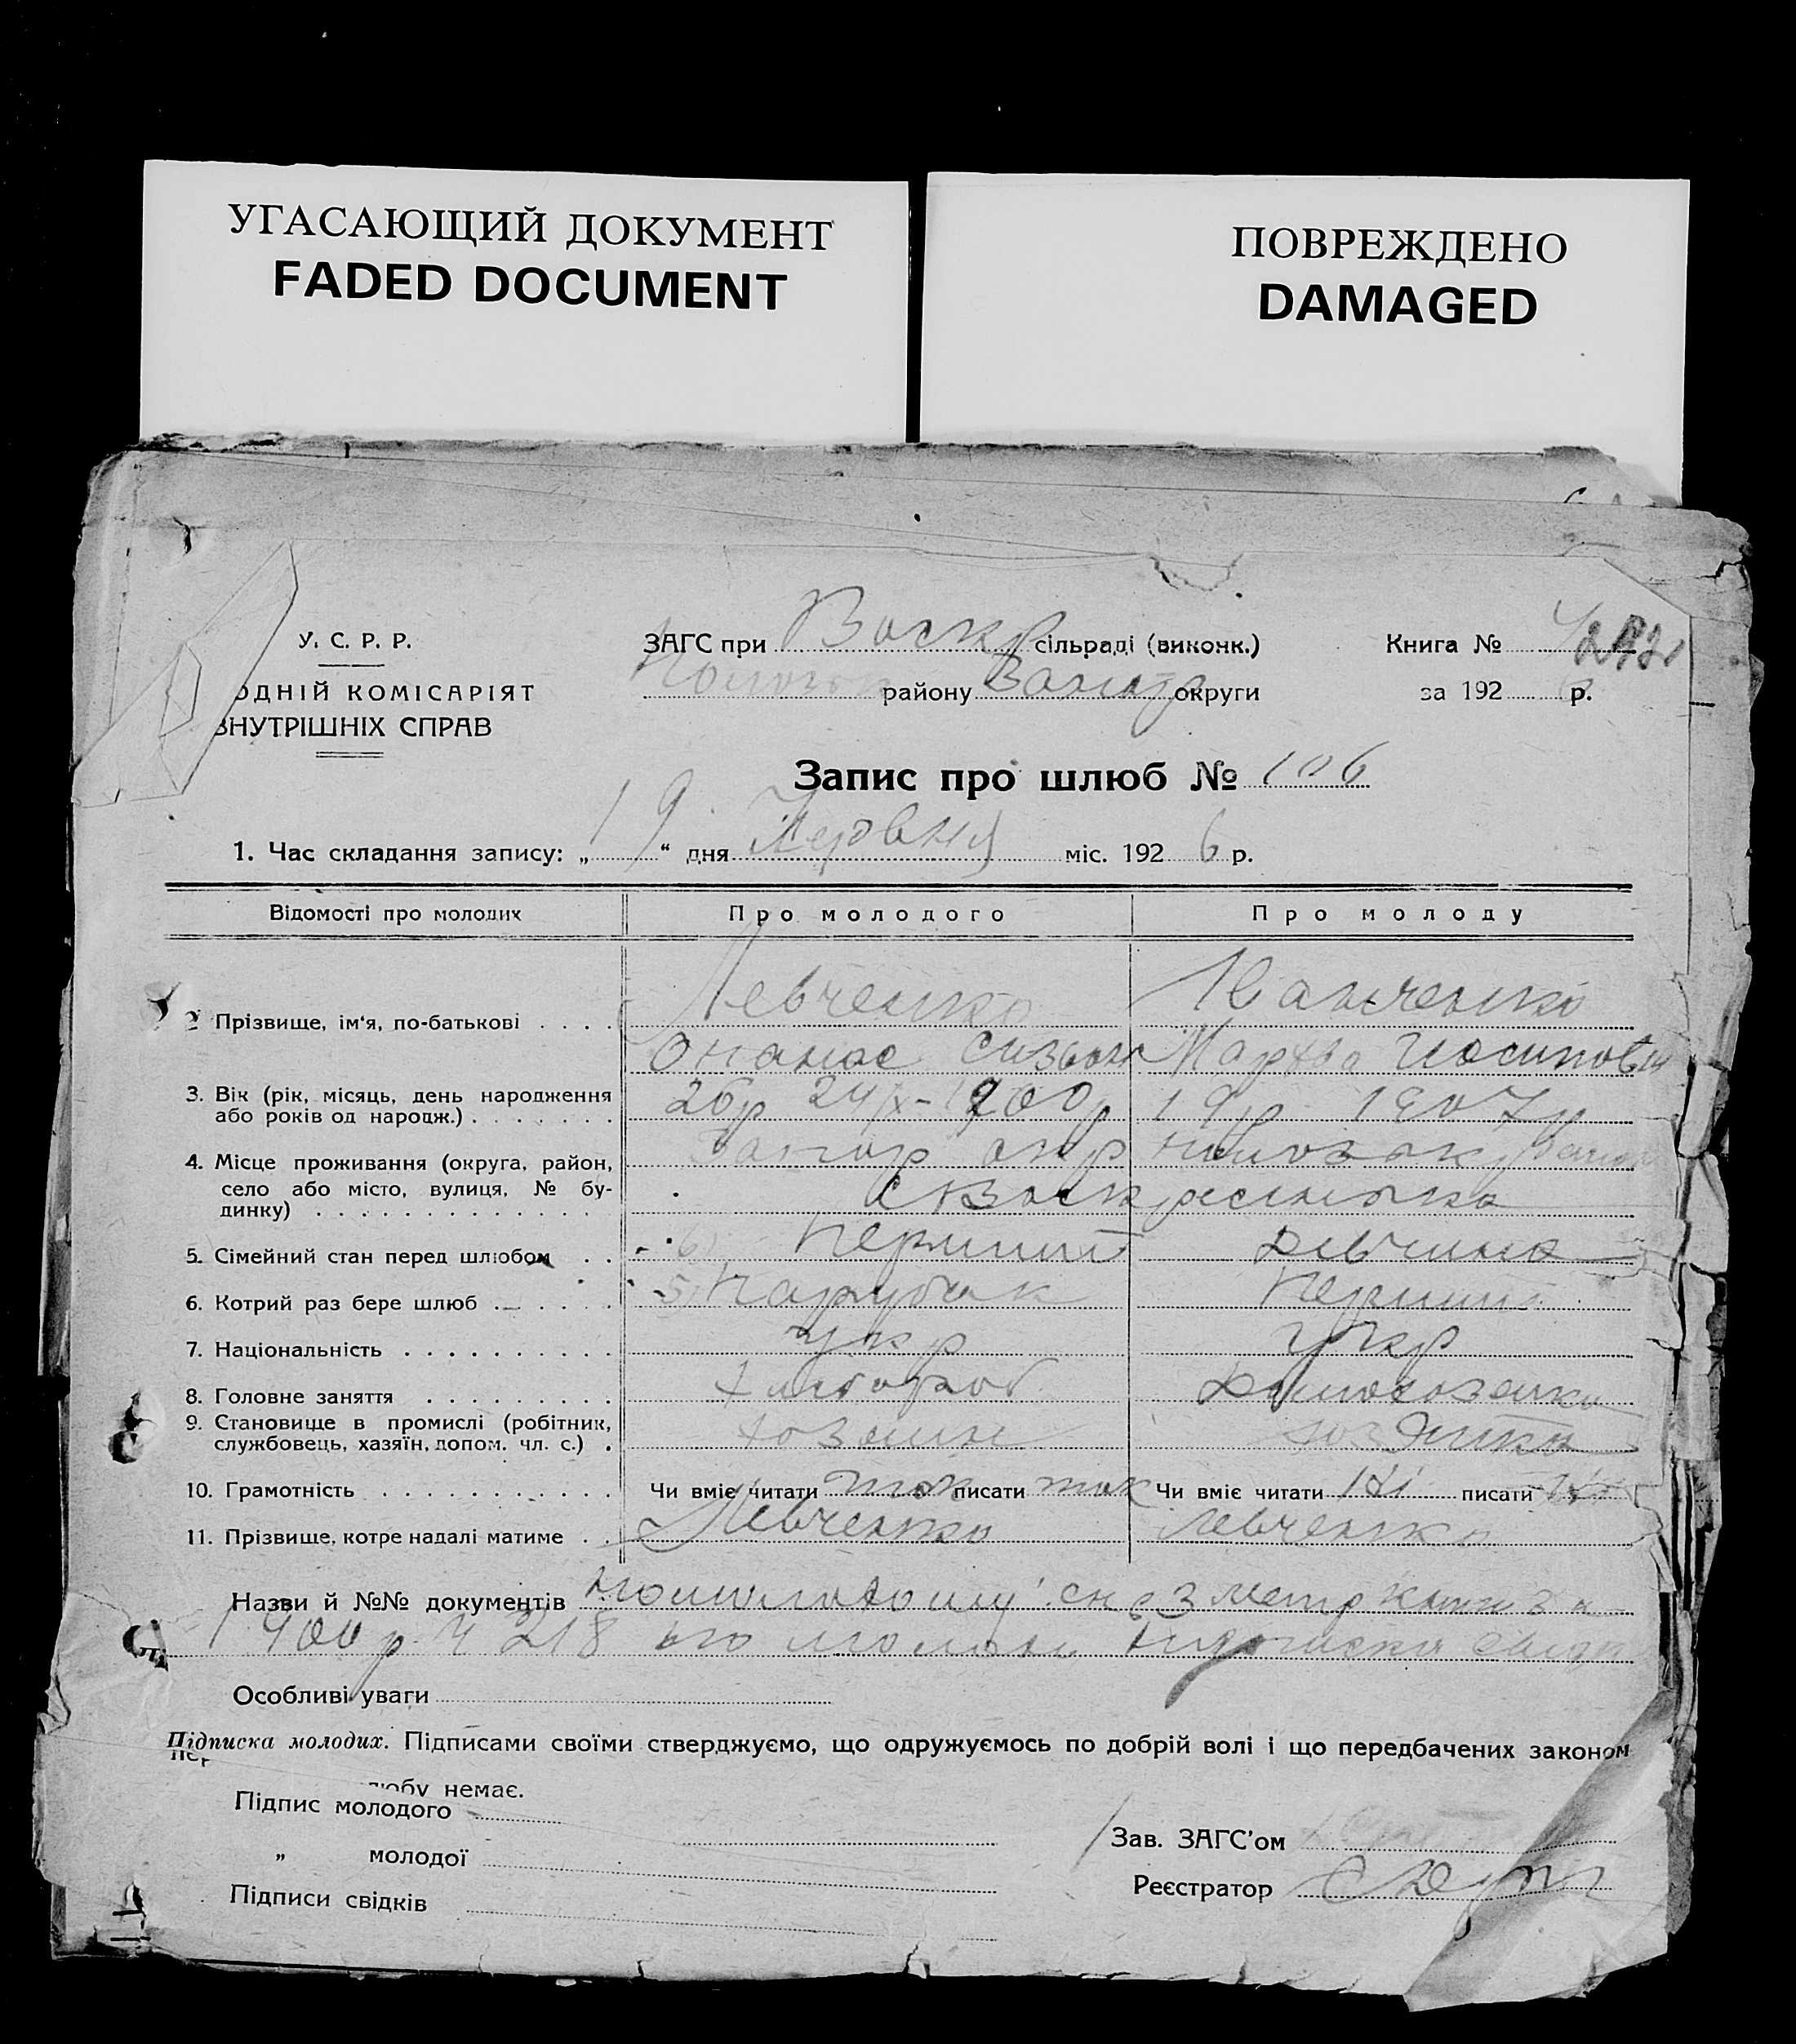 УГАСАЮЩИЙ ДОКУМЕНТ
FADED DOCUMENT
ПОВРЕЖДЕНО
DAMAGED
У. С. Р. Р.
ОДНІЙ КОМІСАРІЯТ
ВНУТРІШНІХ СПРАВ
ЗАГС при Воскр сільраді (виконк.)
району Запор округи
Книга №
за 192 р.
Запис про шлюб № 106
1. Час складання запису: „19“ дня Червня міс. 1926 р.
Відомості про молодих Про молодого Про молоду
2 Прізвище, ім‘я, по-батькові . . . . Левченко
Панас Марфа Иосипов
3. Вік (рік, місяць, день народження
або років од народж.) . . . . . . . 26р 24/X-1900р 19р 1907р
4. Місце проживання (округа, район,
село або місто, вулиця, № бу-
динку) . . . . . . . . . . . . . Запор окр
с Воскресенька
5. Сімейний стан перед шлюбом . . 6) Перший дівчина
6. Котрий раз бере шлюб . . . . . 5) Парубок Перший
7. Національність . . . . . . . . . . укр укр
8. Головне заняття . . . . . . . . . хлібороб
9. Становище в промислі (робітник,
службовець, хазяїн, допом. чл. с.) . хозяин
10. Грамотність . . . . . . . . . . . Чи вміє читати так писати так Чи вміє читати Ні писати Ні
11. Прізвище, котре надалі матиме . . Левченко Левченко
Назви й №№ документів з метр книги за
1900р Ч 218
Особливі уваги
Підписка молодих. Підписами своїми стверджуємо, що одружуємось по добрій волі і що передбачених законом
пер
любу немає.
Підпис молодого
„ молодої
Підписи свідків
Зав. ЗАГС’ом
Реєстратор